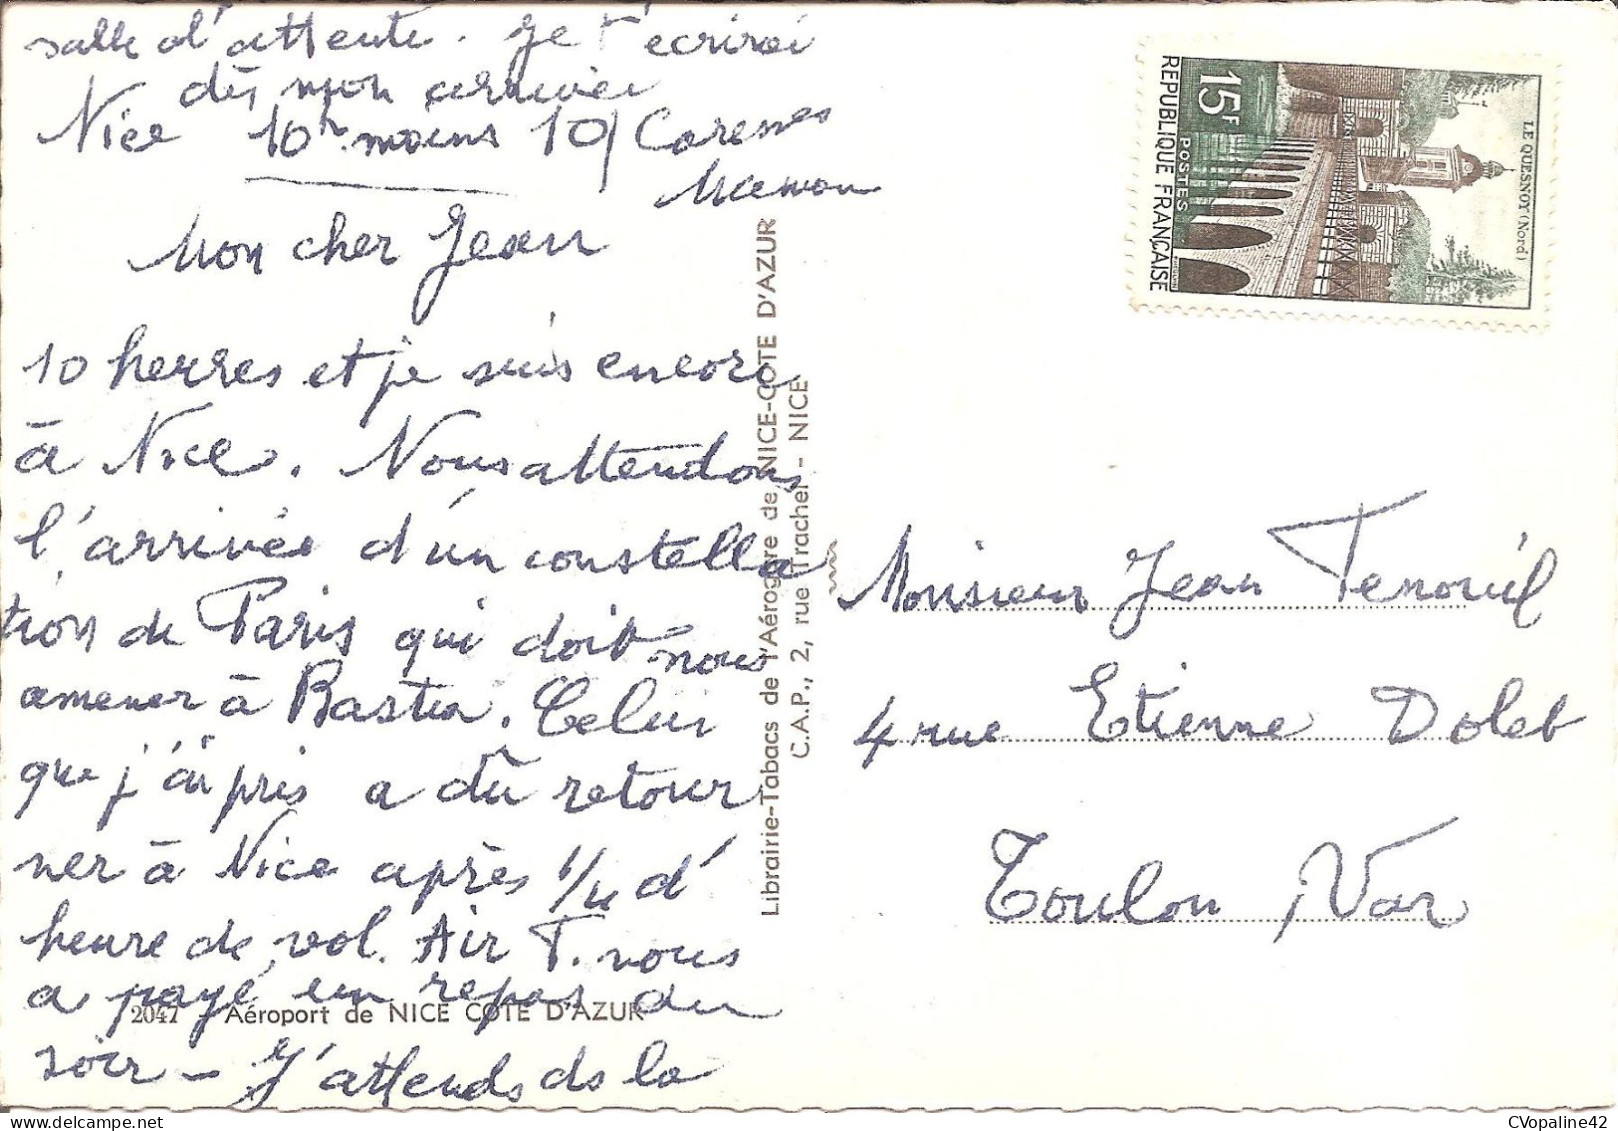 salle d'attente. Je t'écrirai
dès mon arrivée
Nice 10h moins 10/ Caresses
Maman
Mon cher Jean
10 heures et je suis encore
à Nice. Nous attendons
l'arrivée d'un constella
tion de Paris qui doit nous
amener à Bastia. Celui
que j'ai pris a dû retour
ner à Nice après 1/4 d'
heure de vol. Air F. nous
a payé un repas du
soir - J'attends ds la
2047 Aéroport de NICE COTE D'AZUR
Librairie-Tabacs de l'Aérogare de NICE-COTE D'AZUR
C.A.P., 2, rue Trachel - NICE
15F
POSTES
REPUBLIQUE FRANÇAISE
LE QUESNOY (Nord)
Monsieur Jean
4 rue Etienne Dolet
Toulon, Var
CVopaline42